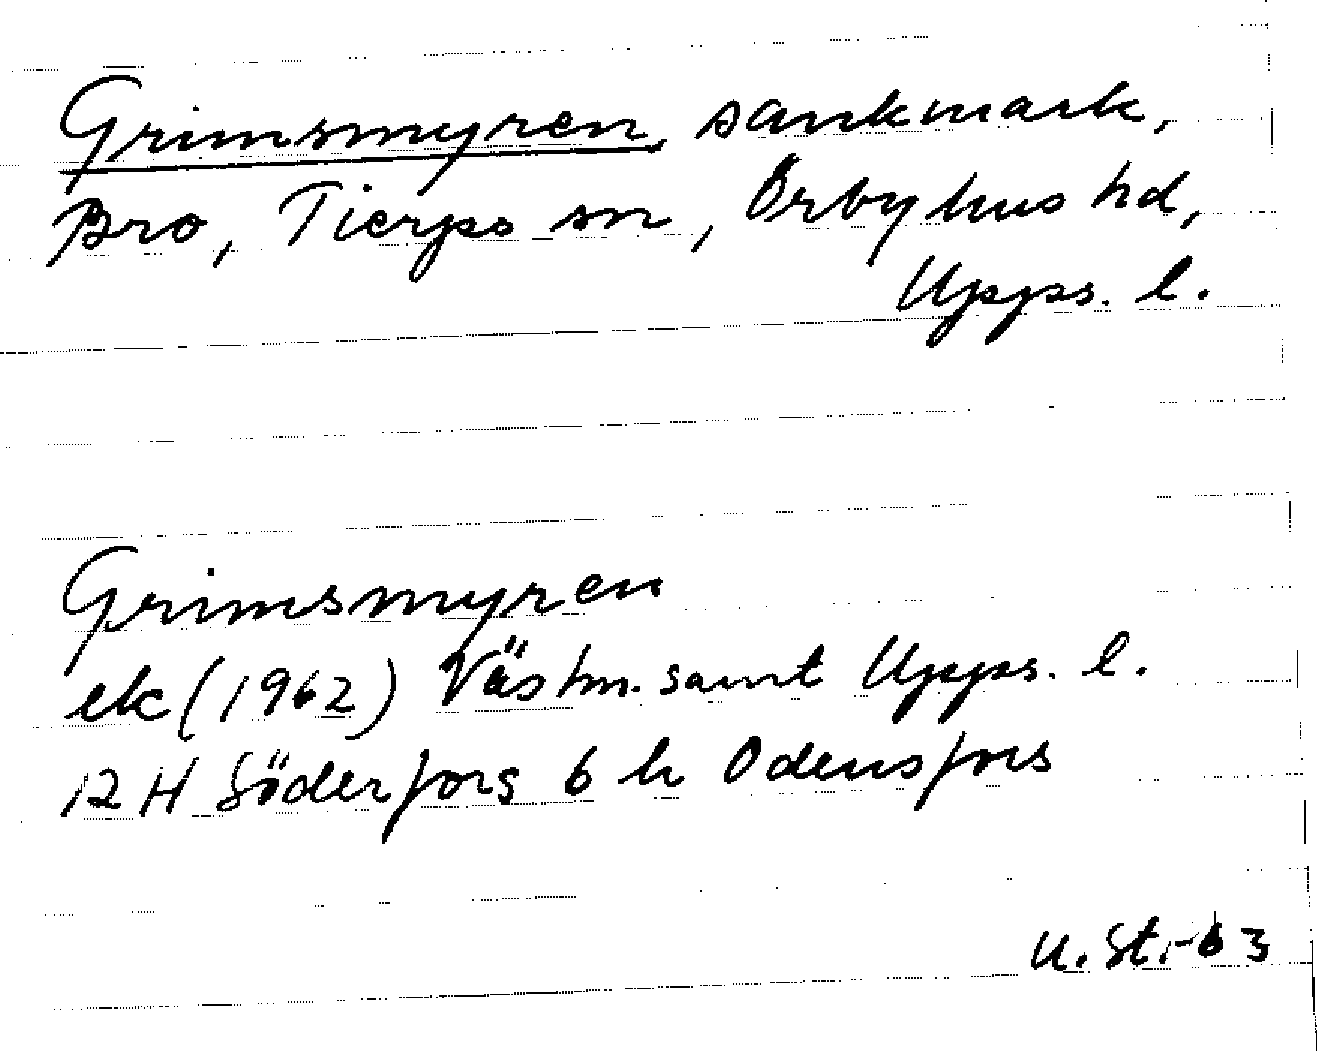 Grimsmyren, sankmark,
Bro, Tierps sn, Örbyhus hd,
Upps. l.
Grimsmyren
ek (1962) Västm. samt Upps. l.
12 H Söderfors 6 h Odensfors
U. St. -63